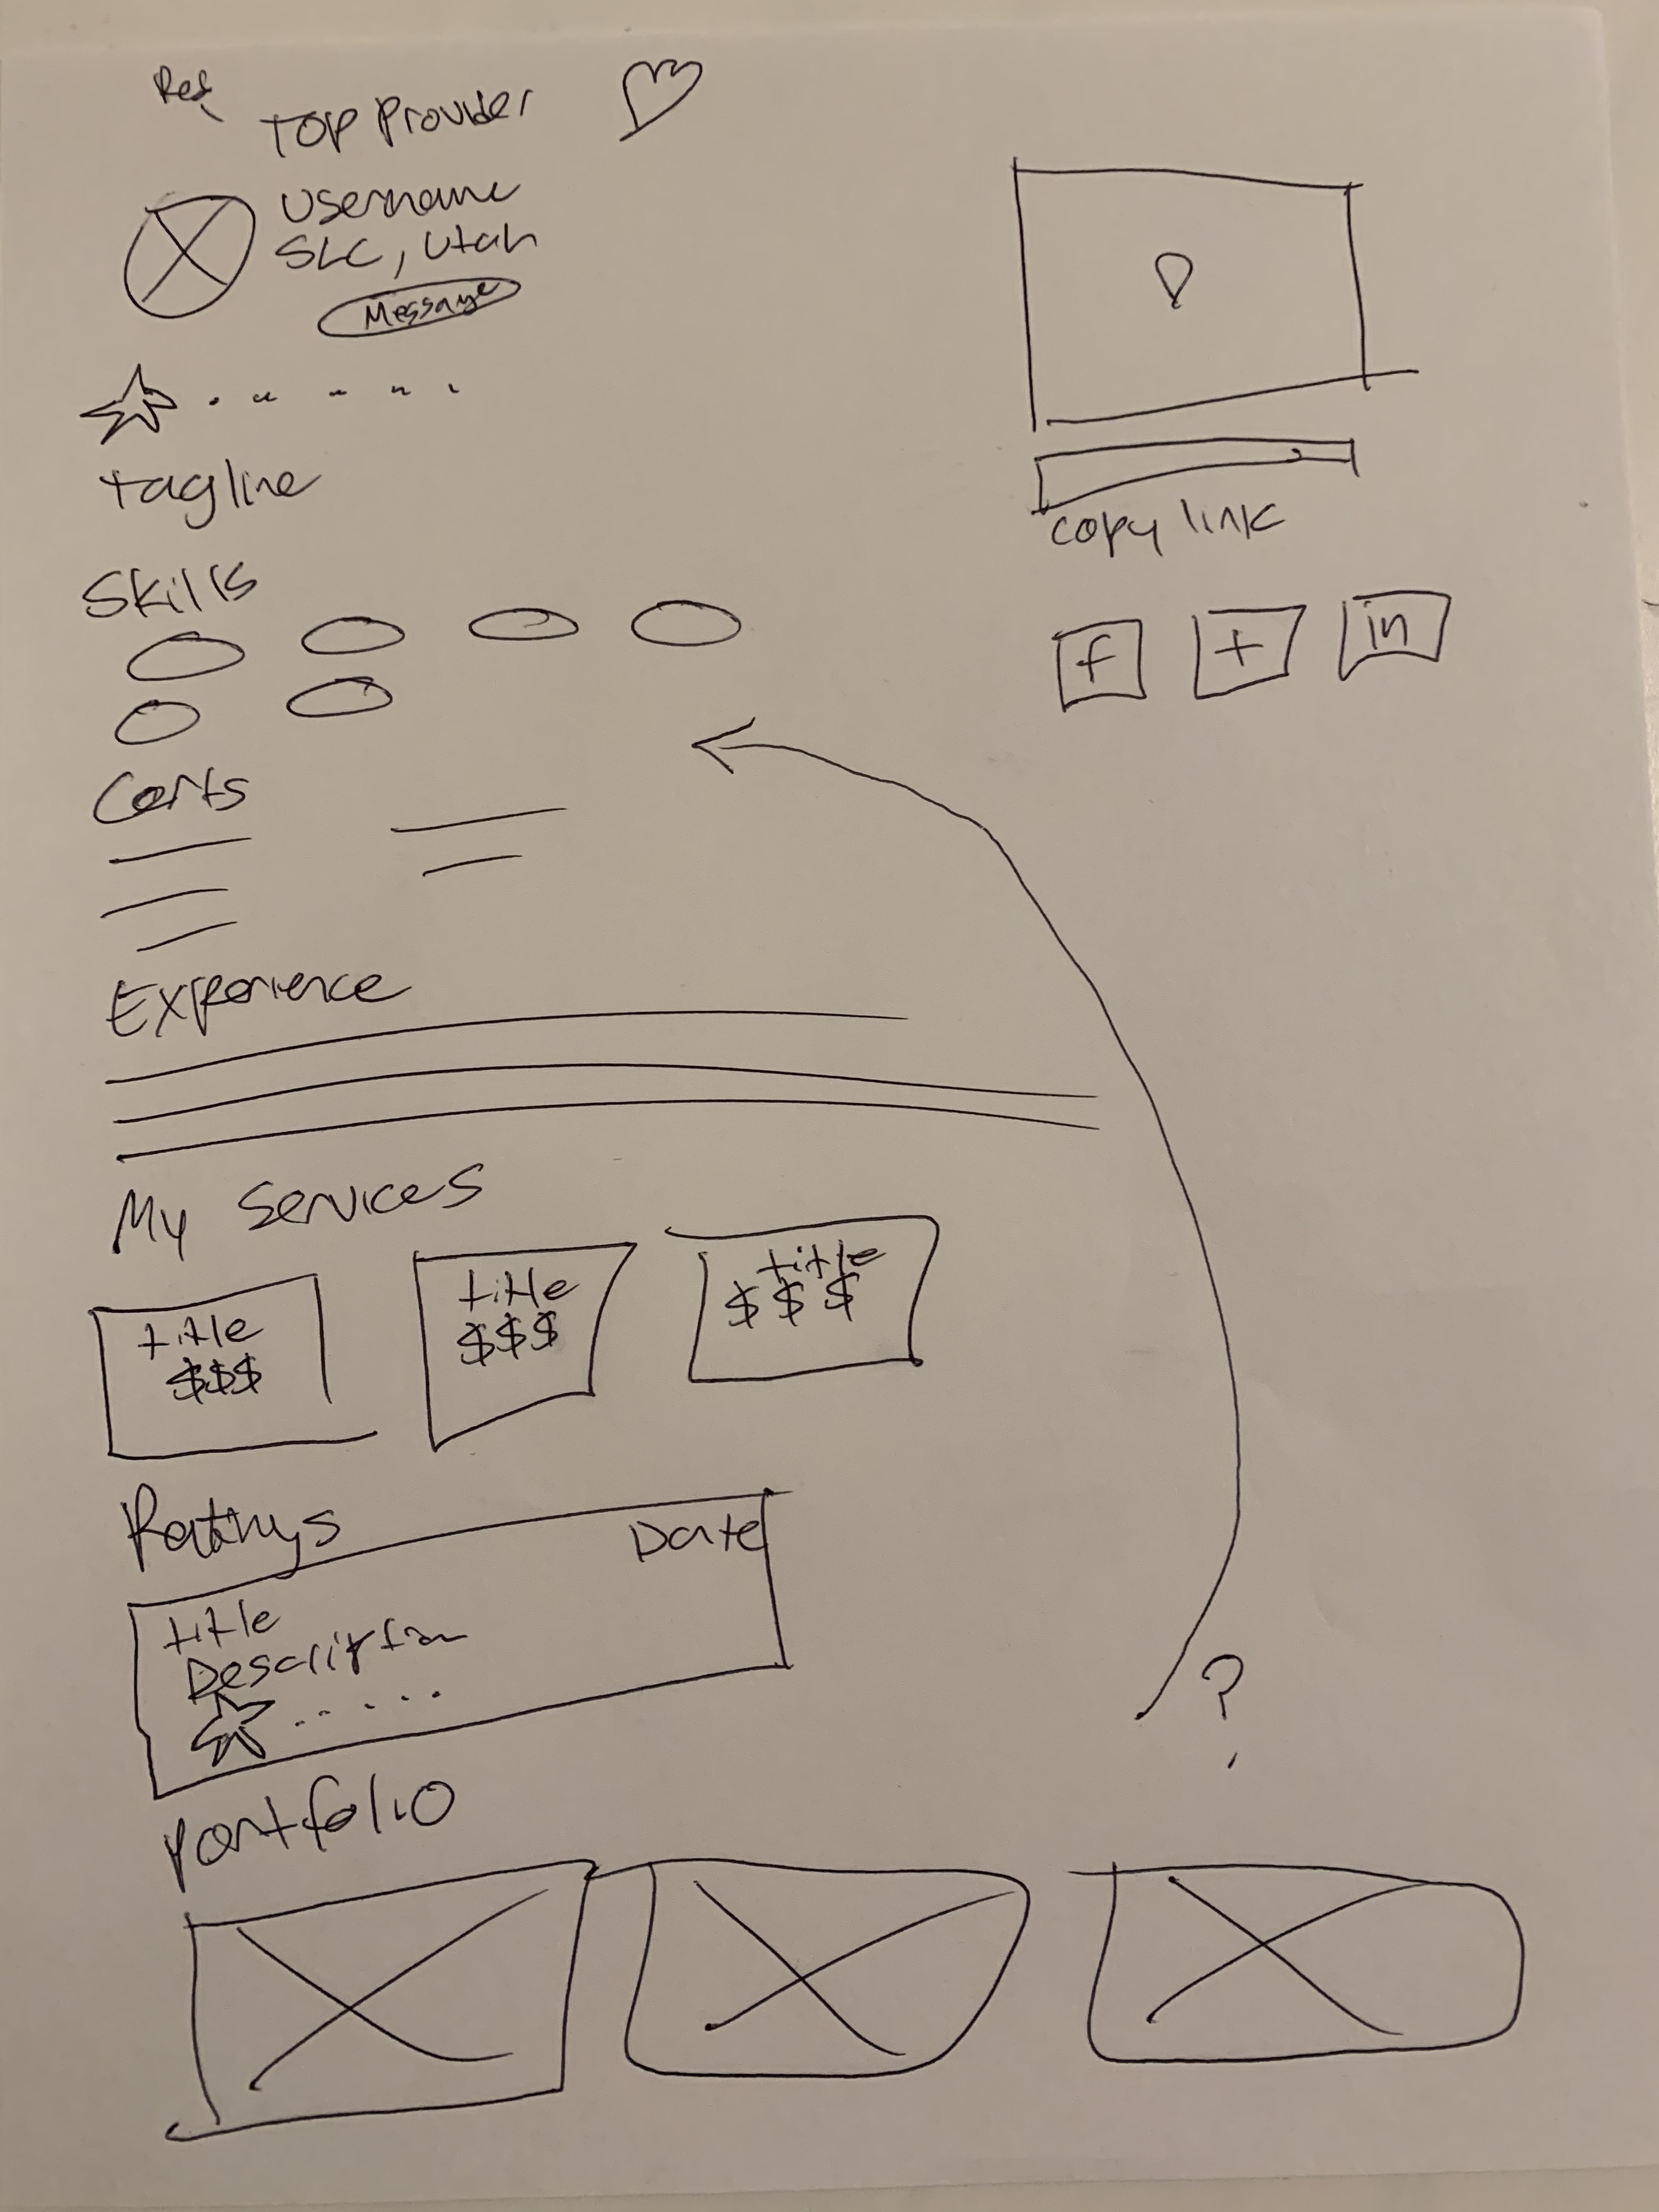 Top Provider
Username
SLC, Utah
Message
tagline
Skills
copy link
f
t
in
Certs
Experience
My Services
title
$$$
title
$$$
title
$$$
Ratings
Date
title
Description
?
portfolio